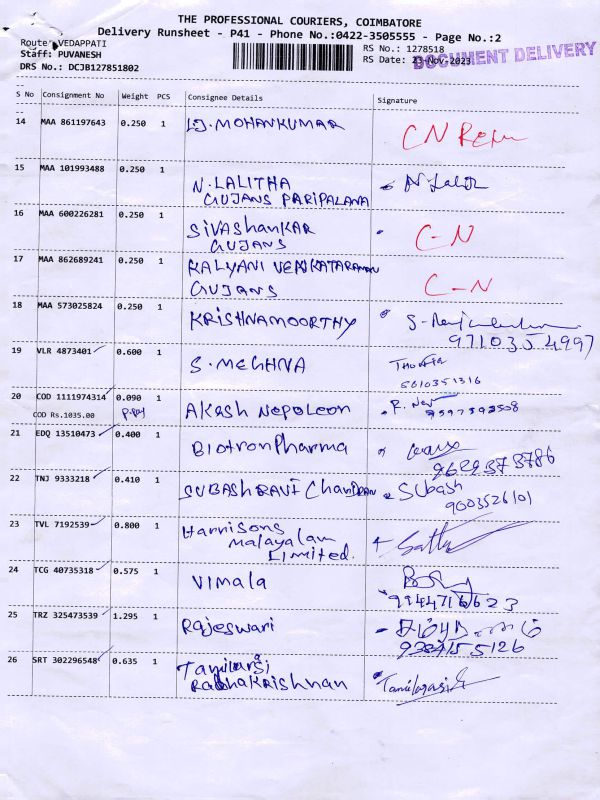 THE PROFESSIONAL COURIERS, COIMBATORE
Delivery Runsheet - P41 - Phone No.:0422-3505555 - Page No.:2
Route: VEDAPPATI
Staff: PUVANESH
DRS No.: DCJB127851802
RS No.: 1278518
RS Date: 23-Nov-2023
DOCUMENT DELIVERY
S No Consignment No Weight PCS Consignee Details Signature
14 MAA 861197643 0.250 1 MOHANKUMAR CN
15 MAA 101993488 0.250 1 N. LALITHA
GUJANS PARIPALANA
16 MAA 600226281 0.250 1 SIVAShANKAR C-N
GUJANS
17 MAA 862689241 0.250 1 KALYANI VENKATARAMAN C-N
GUJANS
18 MAA 573025824 0.250 1 KRISHNAMOORTHY
9710354997
19 VLR 4873401 0.600 1 S. MEGHNA
5610351316
20 COD 1111974314 0.090 1 Akash Nepoleon
COD Rs.1035.00
21 EDQ 13510473 0.400 1 BIotronPharma
9629373786
22 TNJ 9333218 0.410 1 SUBASHRAVI ChanDRAN Subash
9003526101
23 TVL 7192539 0.800 1 Harrisons
Malayalam
LImited.
24 TCG 40735318 0.575 1 Vimala
25 TRZ 325473539 1.295 1 Rajeswari
26 SRT 302296548 0.635 1 Tamilarasi
RadhaKrishnan